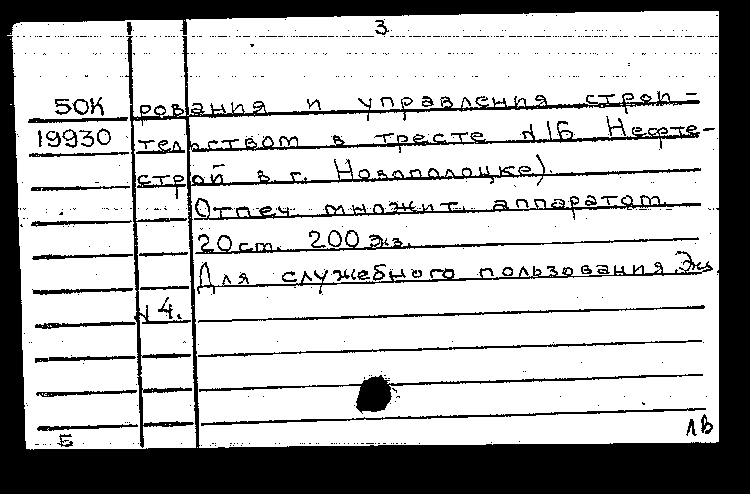 3
50К рования и управления строи-
19930 тельством в тресте №16 Нефте-
строй в г. Новополоцке).
Отпеч. множит. аппаратом.
20 ст. 200 экз.
Для служебного пользования. Экз.
№ 4.
Б
ЛВ